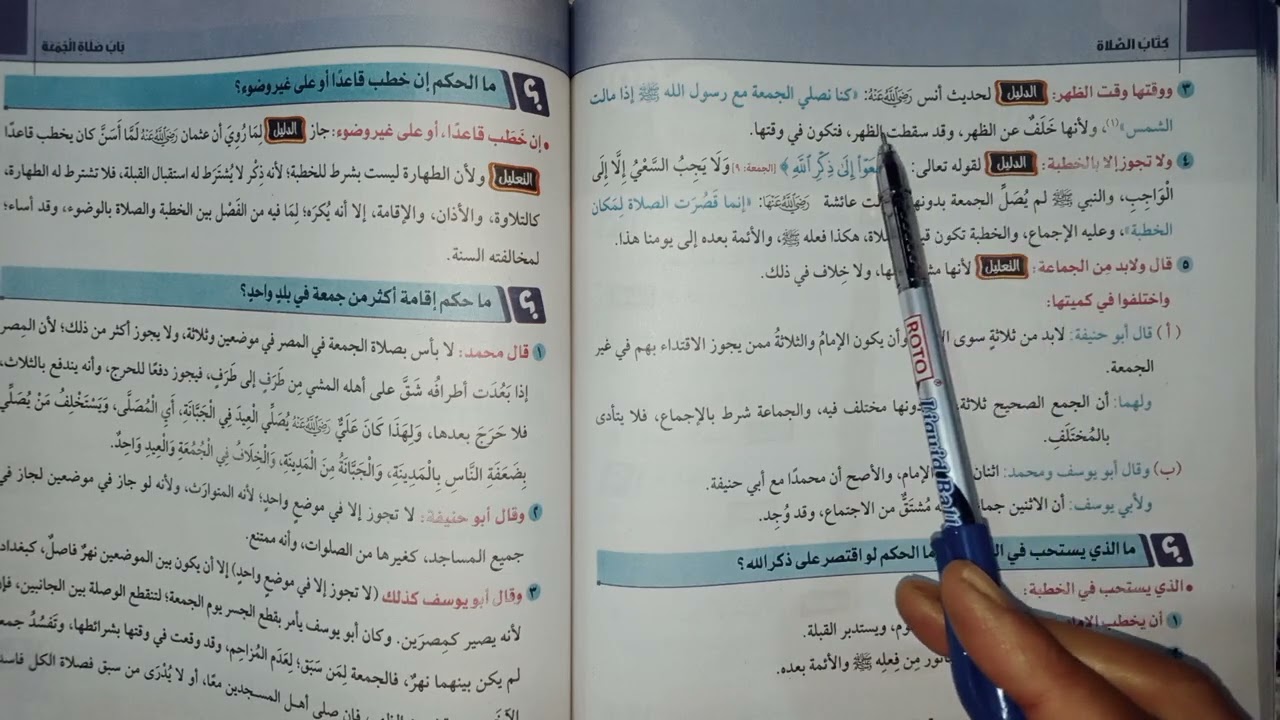 كتاب الصلاة
٣ ووقتها وقت الظهر: الدليل لحديث أنس رضي الله عنه: «كنا نصلي الجمعة مع رسول الله ﷺ إذا مالت
الشمس»(١)، ولأنها خَلَفٌ عن الظهر، وقد سقطت الظهر، فتكون في وقتها.
٤ ولا تجوز إلا بالخطبة: الدليل لقوله تعالى: إِلَىٰ ذِكْرِ ٱللَّهِ﴾ [الجمعة: ٩] وَلَا يَجِبُ السَّعْيُ إِلَّا إِلَى
الْوَاجِبِ، والنبي ﷺ لم يُصَلِّ الجمعة بدونها عائشة رضي الله عنها: «إنما قَصُرَت الصلاة لِمَكان
الخطبة»، وعليه الإجماع، والخطبة تكون هكذا فعله ﷺ، والأئمة بعده إلى يومنا هذا.
٥ قال ولابد مِن الجماعة: التعليل لأنها ولا خِلاف في ذلك.
واختلفوا في كميتها:
(أ) قال أبو حنيفة: لابد من ثلاثةٍ سوى وأن يكون الإمامُ والثلاثةُ ممن يجوز الاقتداء بهم في غير
الجمعة.
ولهما: أن الجمع الصحيح ثلاثة، مختلف فيه، والجماعة شرط بالإجماع، فلا يتأدى
بالمُختَلَفِ.
(ب) وقال أبو يوسف ومحمد: اثنان الإمام، والأصح أن محمدًا مع أبي حنيفة.
ولأبي يوسف: أن الاثنين مُشتَقٌّ من الاجتماع، وقد وُجِد.
؟ ما الذي يستحب في الحكم لو اقتصر على ذكر الله؟
• الذي يستحب في الخطبة:
١ أن يخطب ويستدبر القبلة.
مِن فِعلِه ﷺ والأئمة بعده.
باب صلاة الجمعة
؟ ما الحكم إن خطب قاعدًا أو على غير وضوء؟
• إن خَطَب قاعدًا، أو على غير وضوء: جاز الدليل لِمَا رُوِيَ أن عثمان رضي الله عنه لَمَّا أَسَنَّ كان يخطب قاعدًا
التعليل ولأن الطهارة ليست بشرط للخطبة؛ لأنه ذِكْر لا يُشتَرَط له استقبال القبلة، فلا تشترط له الطهارة،
كالتلاوة، والأذان، والإقامة، إلا أنه يُكرَه؛ لِمَا فيه من الفَصْل بين الخطبة والصلاة بالوضوء، وقد أساء؛
لمخالفته السنة.
؟ ما حكم إقامة أكثر من جمعة في بلدٍ واحدٍ؟
١ قال محمد: لا بأس بصلاة الجمعة في المصر في موضعين وثلاثة، ولا يجوز أكثر من ذلك؛ لأن المِصر
إذا بَعُدَت أطرافُه شَقَّ على أهله المشي مِن طَرَفٍ إلى طَرَفٍ، فيجوز دفعًا للحرج، وأنه يندفع بالثلاث،
فلا حَرَجَ بعدها، وَلِهَذَا كَانَ عَلِيٌّ رضي الله عنه يُصَلِّي الْعِيدَ فِي الْجَبَّانَةِ، أَيِ الْمُصَلَّى، وَيَسْتَخْلِفُ مَنْ يُصَلِّي
بِضَعَفَةِ النَّاسِ بِالْمَدِينَةِ، وَالْجَبَّانَةُ مِنَ الْمَدِينَةِ، وَالْخِلَافُ فِي الْجُمُعَةِ وَالْعِيدِ وَاحِدٌ.
٢ وقال أبو حنيفة: لا تجوز إلا في موضعٍ واحدٍ؛ لأنه المتوارَث، ولأنه لو جاز في موضعين لجاز في
جميع المساجد، كغيرها من الصلوات، وأنه ممتنع.
٣ وقال أبو يوسف كذلك (لا تجوز إلا في موضعٍ واحدٍ) إلا أن يكون بين الموضعين نهرٌ فاصلٌ، كبغداد
لأنه يصير كمِصرَين. وكان أبو يوسف يأمر بقطع الجسر يوم الجمعة؛ لتنقطع الوصلة بين الجانبين، فإن
لم يكن بينهما نهرٌ، فالجمعة لِمَن سَبَق؛ لِعَدَم المُزاحِم، وقد وقعت في وقتها بشرائطها، وتَفسُدُ جمعة
فإن صلى أهل المسجدين معًا، أو لا يُدْرَى من سبق فصلاة الكل فاسد
ROTO